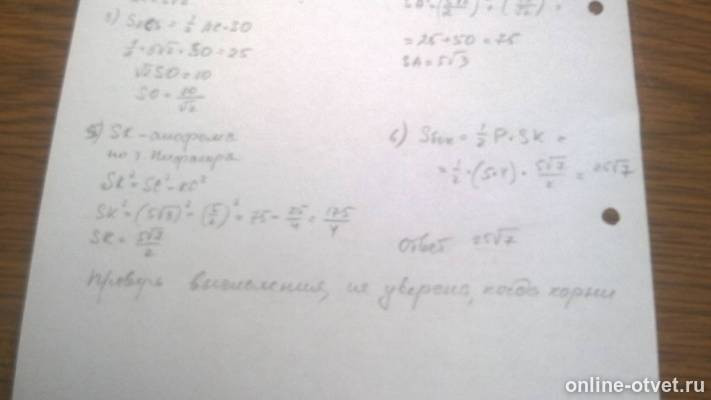 3) S = 1/2 AC · SO
1/2 · 5√2 · SO = 25
√2 SO = 10
SO = 10/√2
= 25 + 50 = 75
SA = 5√3
5) SK - апофема
по т. Пифагора
SK² = SC² - KC²
SK² = (5√3)² - (5/2)² = 75 - 25/4 = 275/4
SK = 5√7/2
6) Sбок = 1/2 P · SK =
= 1/2 · (5·4) · 5√7/2 = 25√7
Ответ 25√7
Проверь вычисления, не уверена, когда корни
online-otvet.ru